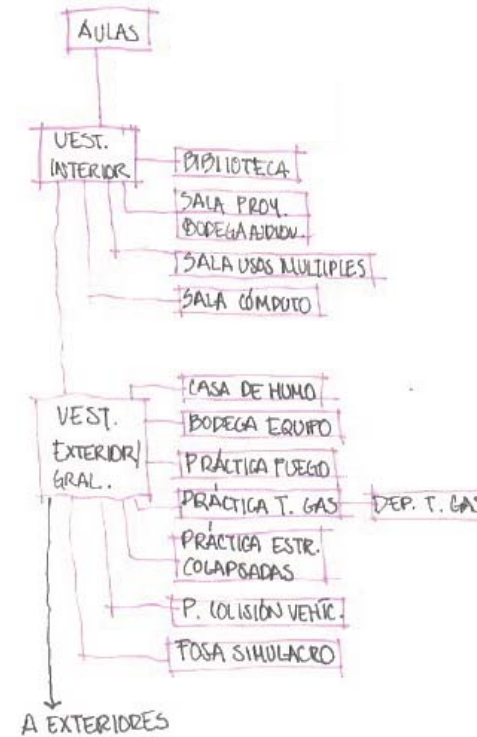 AULAS
VEST.
INTERIOR
BIBLIOTECA
SALA PROY.
BODEGA AUDIOV.
SALA USOS MULTIPLES
SALA CÓMPUTO
VEST.
EXTERIOR/
GRAL.
CASA DE HUMO
BODEGA EQUIPO
PRÁCTICA FUEGO
PRÁCTICA T. GAS
DEP. T. GAS
PRÁCTICA ESTR.
COLAPSADAS
P. COLISIÓN VEHÍC.
FOSA SIMULACRO
A EXTERIORES